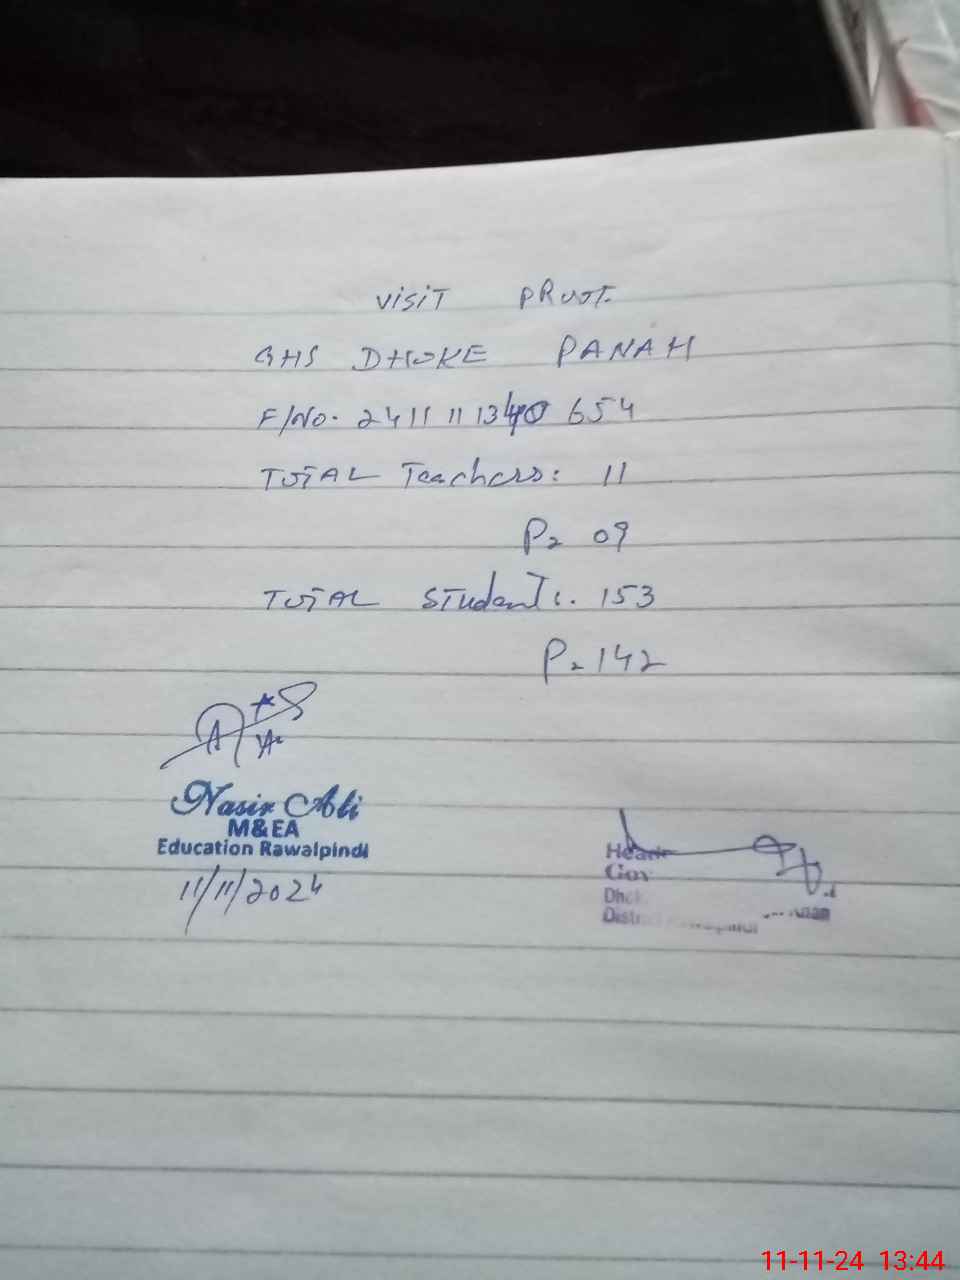 VISIT PROOF.
GHS DHOKE PANAH
F/No. 2411 11 1340 654
TOTAL Teachers: 11
P= 09
TOTAL Students: 153
P= 142
Nasir Ali
M&EA
Education Rawalpindi
11/11/2024
Gov
Dhok
11-11-24 13:44